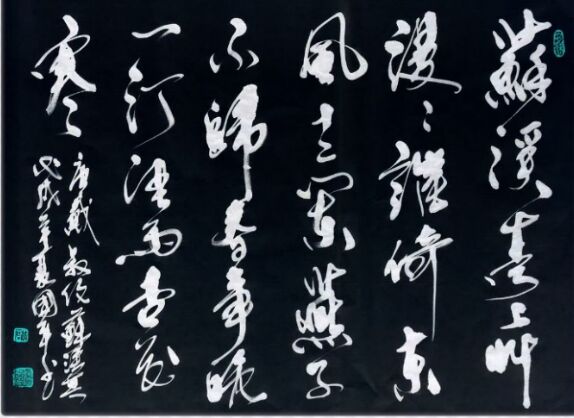 蘇溪亭上艸
漫〻誰倚東
風十二闌燕子
不歸春事晚
一汀烟雨杏花
寒
唐戴叔伦蘇溪亭
戊戌年